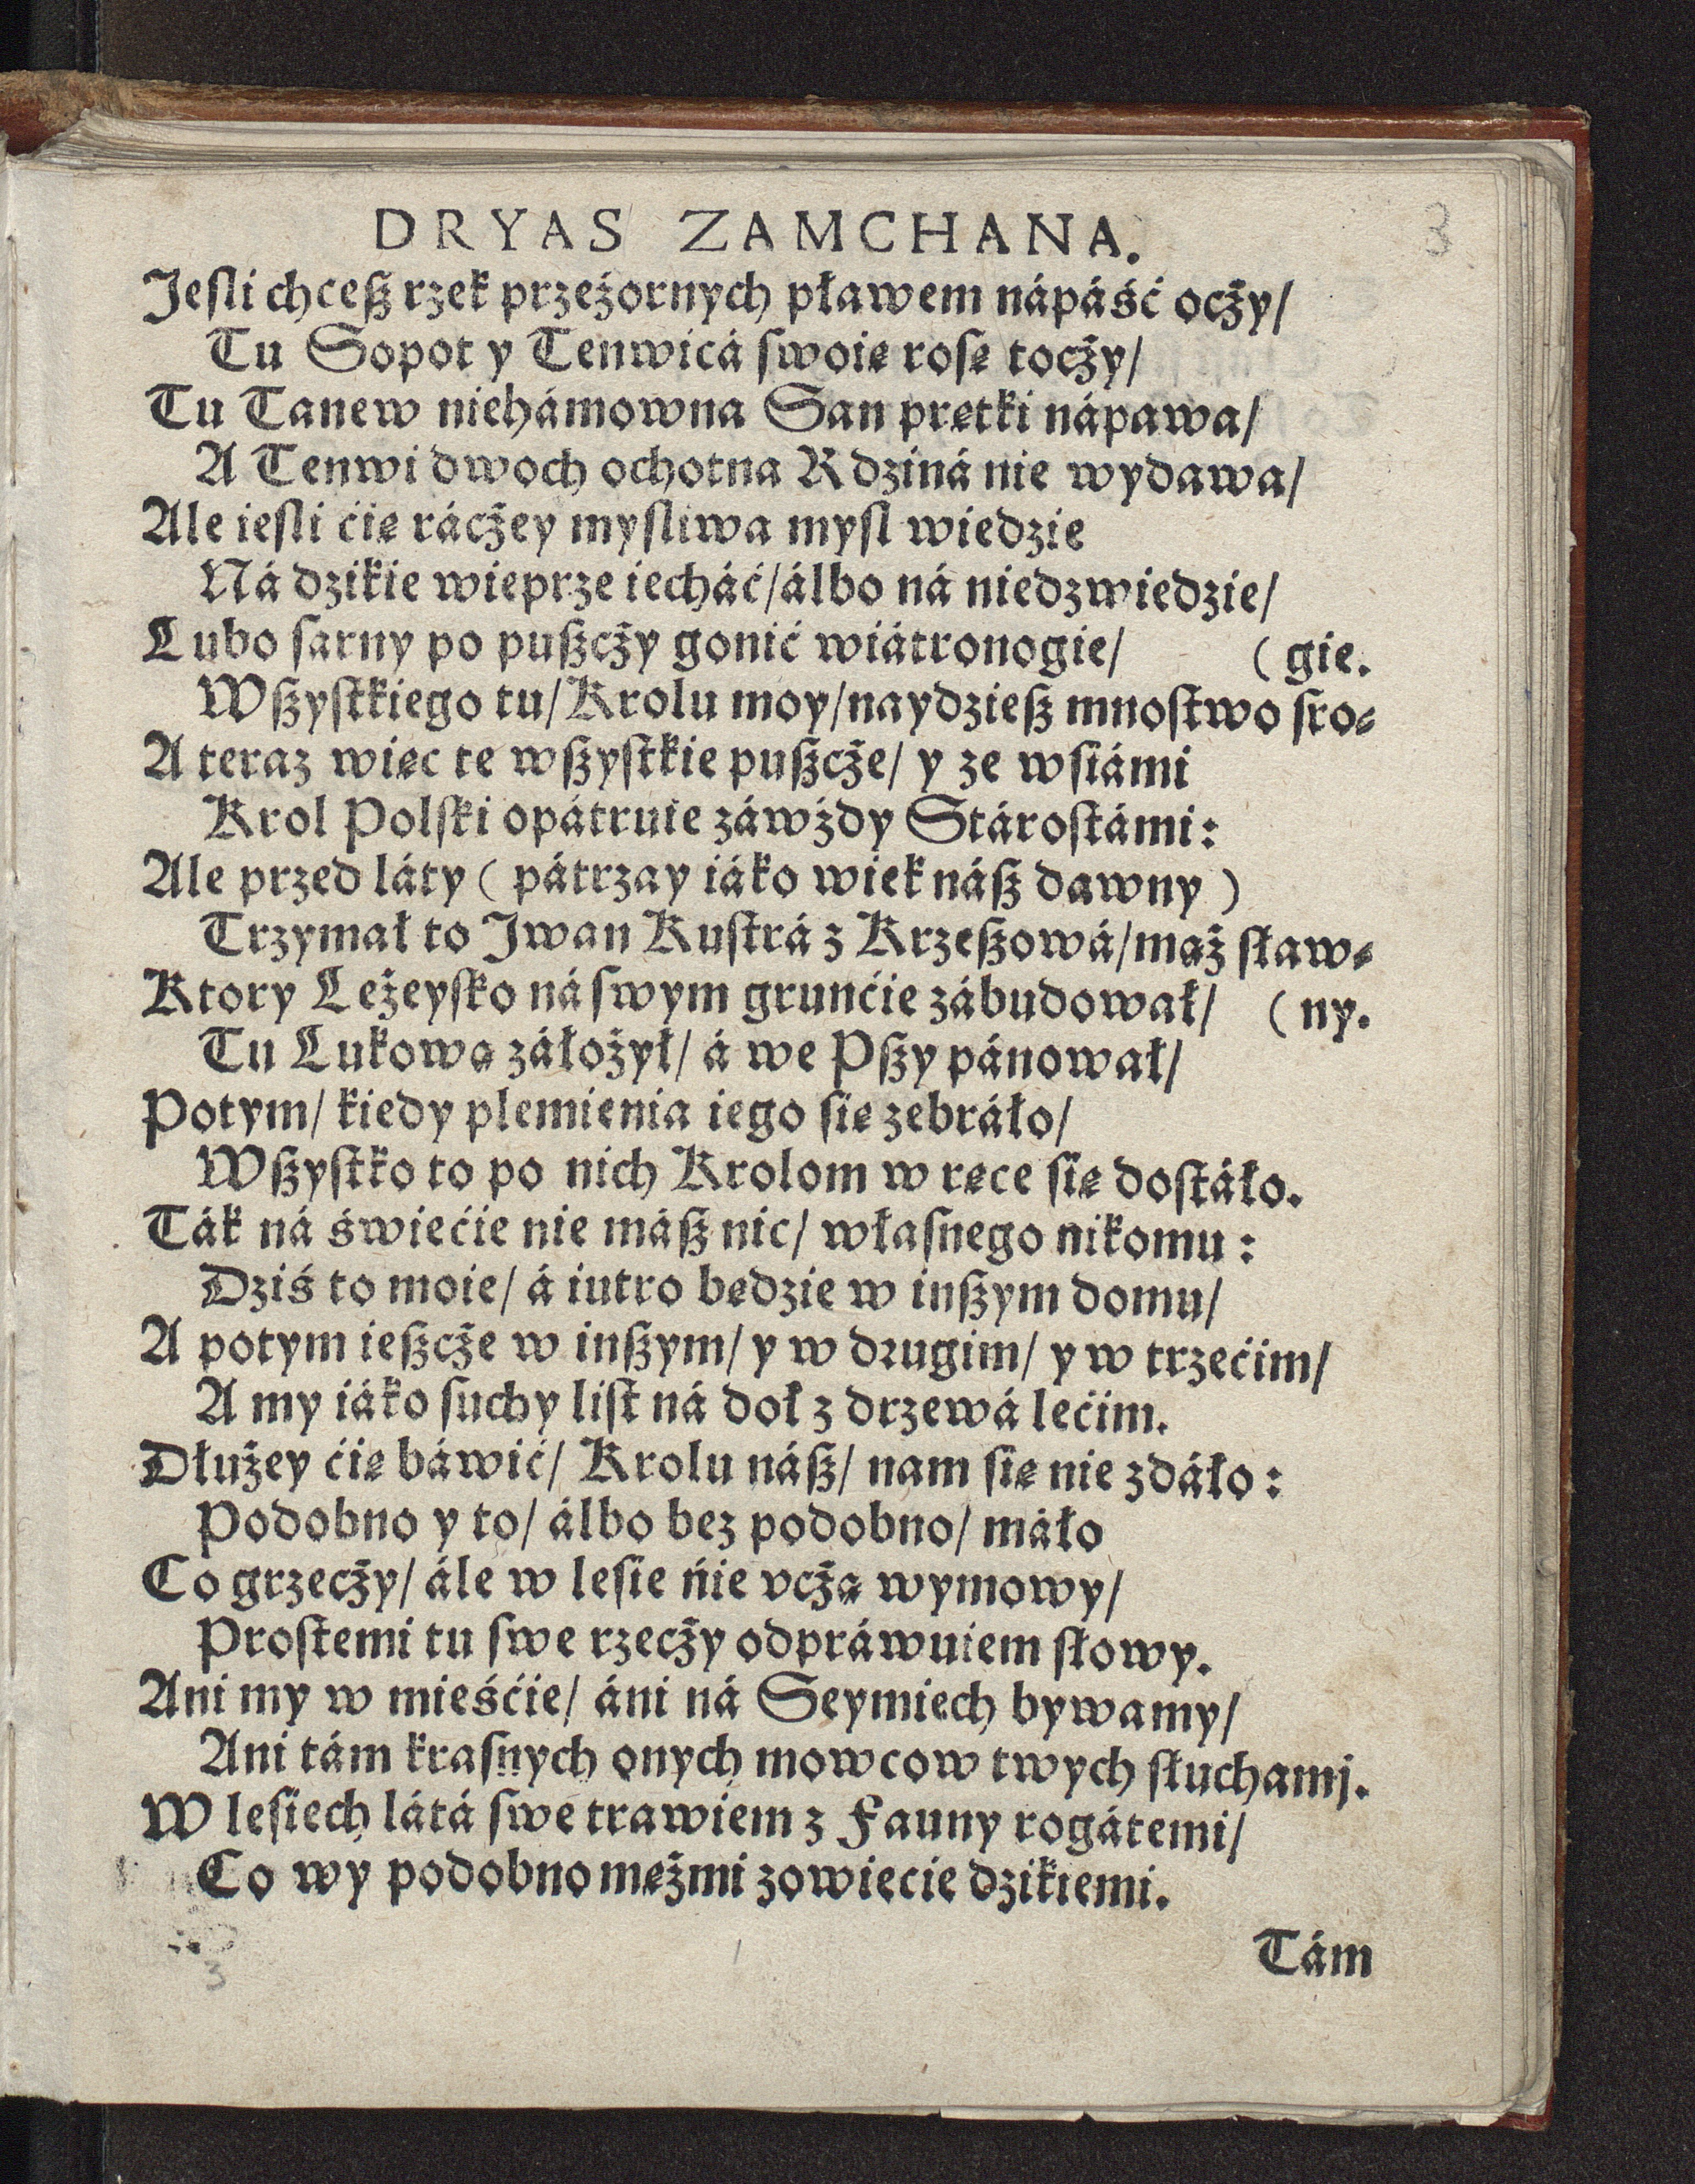 DRYAS ZAMCHANA.
3
Jeſli chceſz rzek przeźornych pławem nápáść oczy/
Tu Sopot y Tenwicá ſwoię roſę toczy/
Tu Tanew niehámowna San prętki nápawa/
A Tenwi dwoch ochotna Rdziná nie wydawa/
Ale ieſli ćię ráczey myſliwa myſl wiedzie
Ná dzikie wieprze iecháć/ álbo ná niedzwiedzie/
Lubo ſarny po puſzczy gonić wiátronogie/ (gie.
Wſzyſtkiego tu/ Krolu moy/ naydzieſz mnoſtwo ſro⸗
A teraz więc te wſzyſtkie puſzcze/ y ze wſiámi
Krol Polſki opátruie záwżdy Stároſtámi:
Ale przed láty ( pátrzay iáko wiek náſz dawny )
Trzymał to Jwan Kuſtrá z Krzeſzowá/ mąż ſław⸗
Ktory Leżeyſko ná ſwym grunćie zábudował/ (ny.
Tu Lukową záłożył/ á we Pſzy pánował/
Potym/ kiedy plemienia iego ſię zebráło/
Wſzyſtko to po nich Krolom w ręce ſię doſtáło.
Ták ná świećie nie máſz nic/ właſnego nikomu:
Dziś to moie/ á iutro będzie w inſzym domu/
A potym ieſzcze w inſzym/ y w drugim/ y w trzećim/
A my iáko ſuchy liſt ná doł z drzewá lećim.
Dłużey ćię báwić/ Krolu náſz/ nam ſię nie zdáło:
Podobno y to/ álbo bez podobno/ máło
Co grzeczy/ ále w leſie ńie vczą wymowy/
Proſtemi tu ſwe rzeczy odpráwuiem ſłowy.
Ani my w mieśćie/ áni ná Seymiech bywamy/
Ani tám kraſnych onych mowcow twych ſłuchamj.
W leſiech látá ſwe trawiem z Fauny rogátemi/
Co wy podobno mężmi zowiecie dzikiemi.
Tám
3